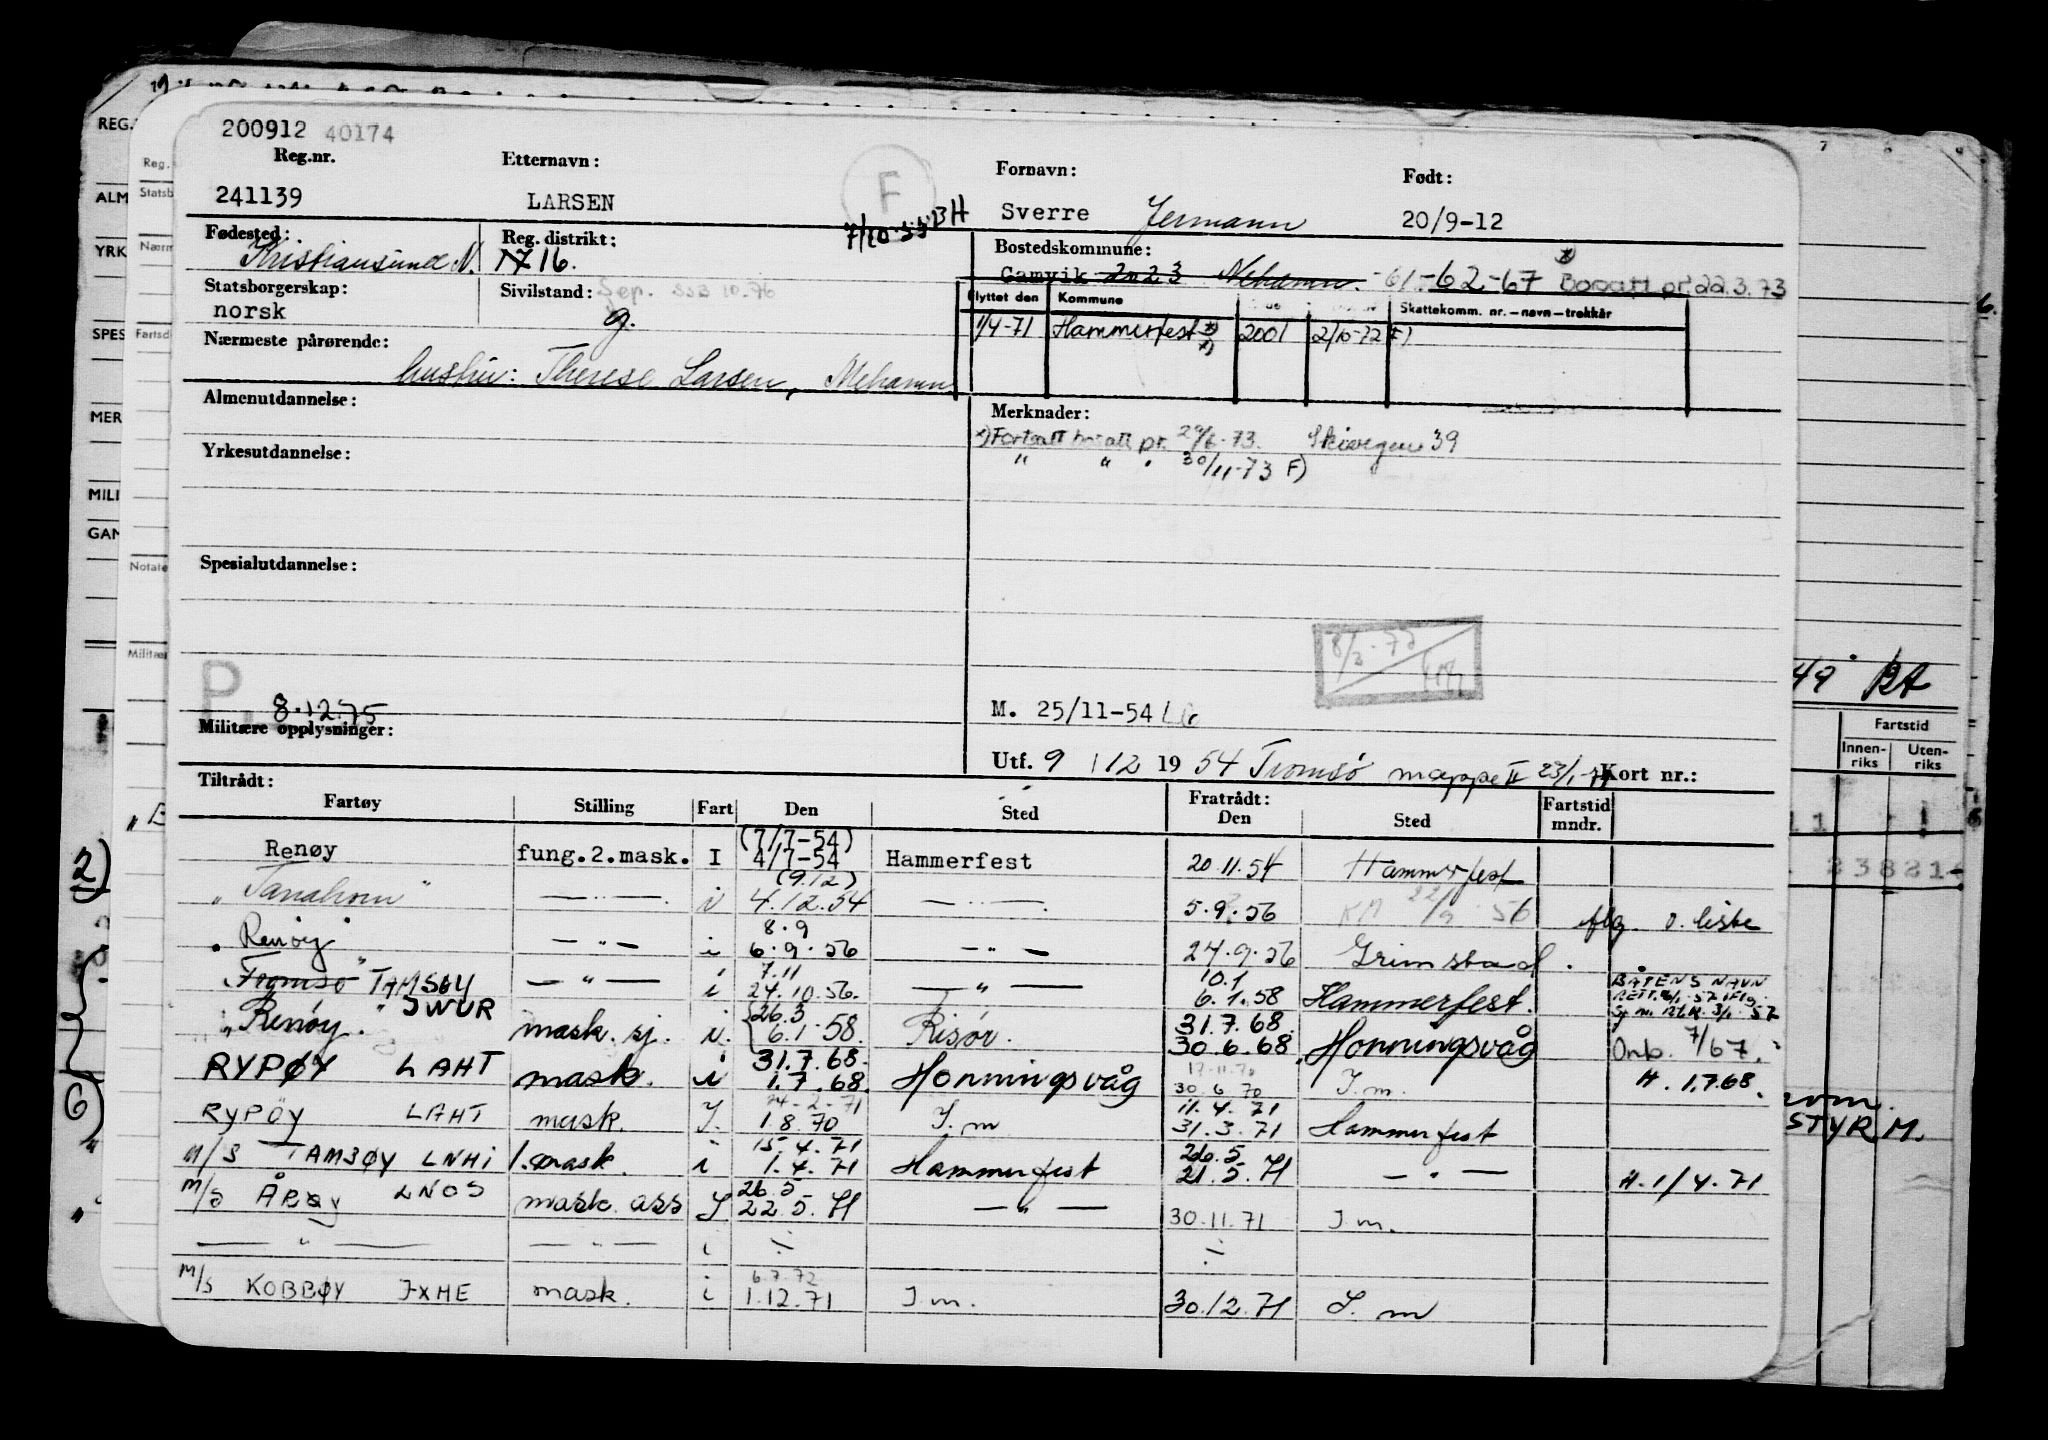 200912 40174
Reg.nr. Etternavn: Fornavn: Født:
241139 LARSEN F Sverre Jermann 20/9-12
7/10.55 BH
Fødested: Reg. distrikt: Bostedskommune:
Kristiansund N. 16. Gamvik 2023 Mehamn -61-62-67 Bosatt pr 22.3.73
Statsborgerskap: Sivilstand: Sep. SSB 10.76
norsk g.
Flyttet den Kommune Skattekomm. nr.—navn—trekkår
1/4-71 Hammerfest 2001 2/10-72 F)
Nærmeste pårørende:
hustru: Therese Larsen, Mehamn
Almenutdannelse: Merknader:
x) Fortsatt bosatt pr. 29/6-73. Skivegen 39
" " " 30/11-73 F)
Yrkesutdannelse:
Spesialutdannelse:
8/2-77
P. 8.12.75
M. 25/11-54
Militære opplysninger:
Utf. 9/12 1954 Tromsø mappe II 23/1-71 Kort nr.:
Tiltrådt: Fratrådt:
Fartøy Stilling Fart Den Sted Den Sted Fartstid mndr.
(7/7-54)
Renøy fung.2.mask. I 4/7-54 Hammerfest 20.11.54 Hammerfest
(9.12)
"Tanahorn" — " — i 4.12.54 — " — 5.9.56 KM 22/9 56 flg. o. liste
8.9
" Renøy " — " — i 6.9.56 — " — 24.9.56 Grimstad.
7.11 10.1 BÅTENS NAVN
Tromsø TAMSØY — " — i 24.10.56. — " — 6.1.58 Hammerfest.
26.3 31.7.68.
"Renøy." JWUR mask. sj. i. 6.1.58. Risør. 30.6.68 Honningsvåg Omb. 7/67.
31.7.68. 17-11.70
RYPØY LAHT mask. i 1.7.68. Honningsvåg 30 6 70 I.m. H. 1.7.68.
24-2-71 11.4.71
RYPÖY LAHT mask. I. 1.8.70 I.m 31.3.71 Hammerfest
15.4.71 26.5
M/S TAMSØY LNHI 1. mask. i 1.4.71 Hammerfest 21.5.71 — " — H. 1/4.71
26.5
M/S ÅRØY LNOS mask. ass I 22.5.71 — " — 30.11.71 I m.
— " — — " — i ÷ ÷
6.7.72
M/S KOBBØY JXHE mask. i 1.12.71 I m. 30.12.71 I. m
REG.
ALM
YRK
SPES
MER
MILI
GAN
Reg.
Statsb
Nærm
Fartsd
Notate
Militær
2)
6)
49 BA
Fartstid
Innen-riks Uten-riks
11
23821-
STYRM.